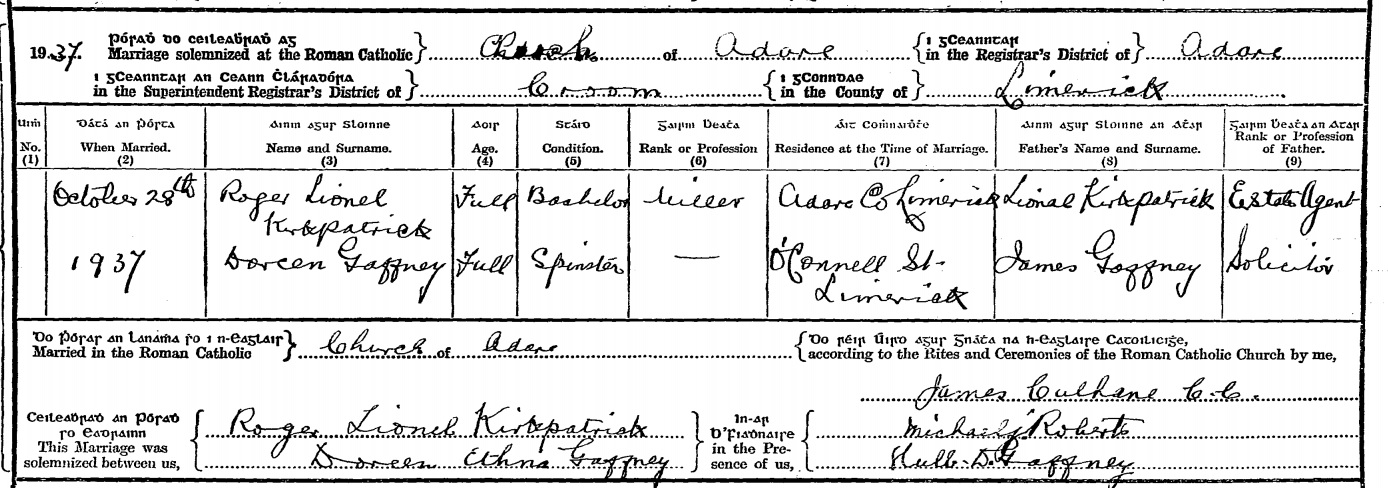 1937. Pórad do ceileabrad ag
Marriage solemnized at the Roman Catholic } Church of Adare { i gCeanntar
in the Registrar's District of } Adare
i gCeanntar an Ceann Ċláradóra
in the Superintendent Registrar's District of } Croom { i gConndae
in the County of } Limerick
Uimh Dáta an Pórta Ainm agus Sloinne Aois Staid Gairm Beata Áit Comnuidte Ainm agus Sloinne an Atar Gairm Beata an Atar
No. When Married. Name and Surname. Age. Condition. Rank or Profession Residence at the Time of Marriage. Father's Name and Surname. Rank or Profession of Father.
(1) (2) (3) (4) (5) (6) (7) (8) (9)
October 28th Roger Lionel Kirkpatrick Full Bachelor Miller Adare Co Limerick Lional Kirkpatrick Estate Agent
1937 Doreen Gaffney Full Spinster — O'Connell St- Limerick James Gaffney Solicitor
Do Pórad an lanama so i n-eaglais
Married in the Roman Catholic } Church of Adare { Do réir Úird agus Gnáta na h-eaglaise Catoilicige,
according to the Rites and Ceremonies of the Roman Catholic Church by me,
James Culhane C.C.
Ceileabrad an Pórad
so eadrainn
This Marriage was
solemnized between us,
Roger Lionel Kirkpatrick
Doreen Ethna Gaffney
In-ar
b'Fiadnaire
in the Pre-
sence of us,
Michael J Roberts
D. Gaffney